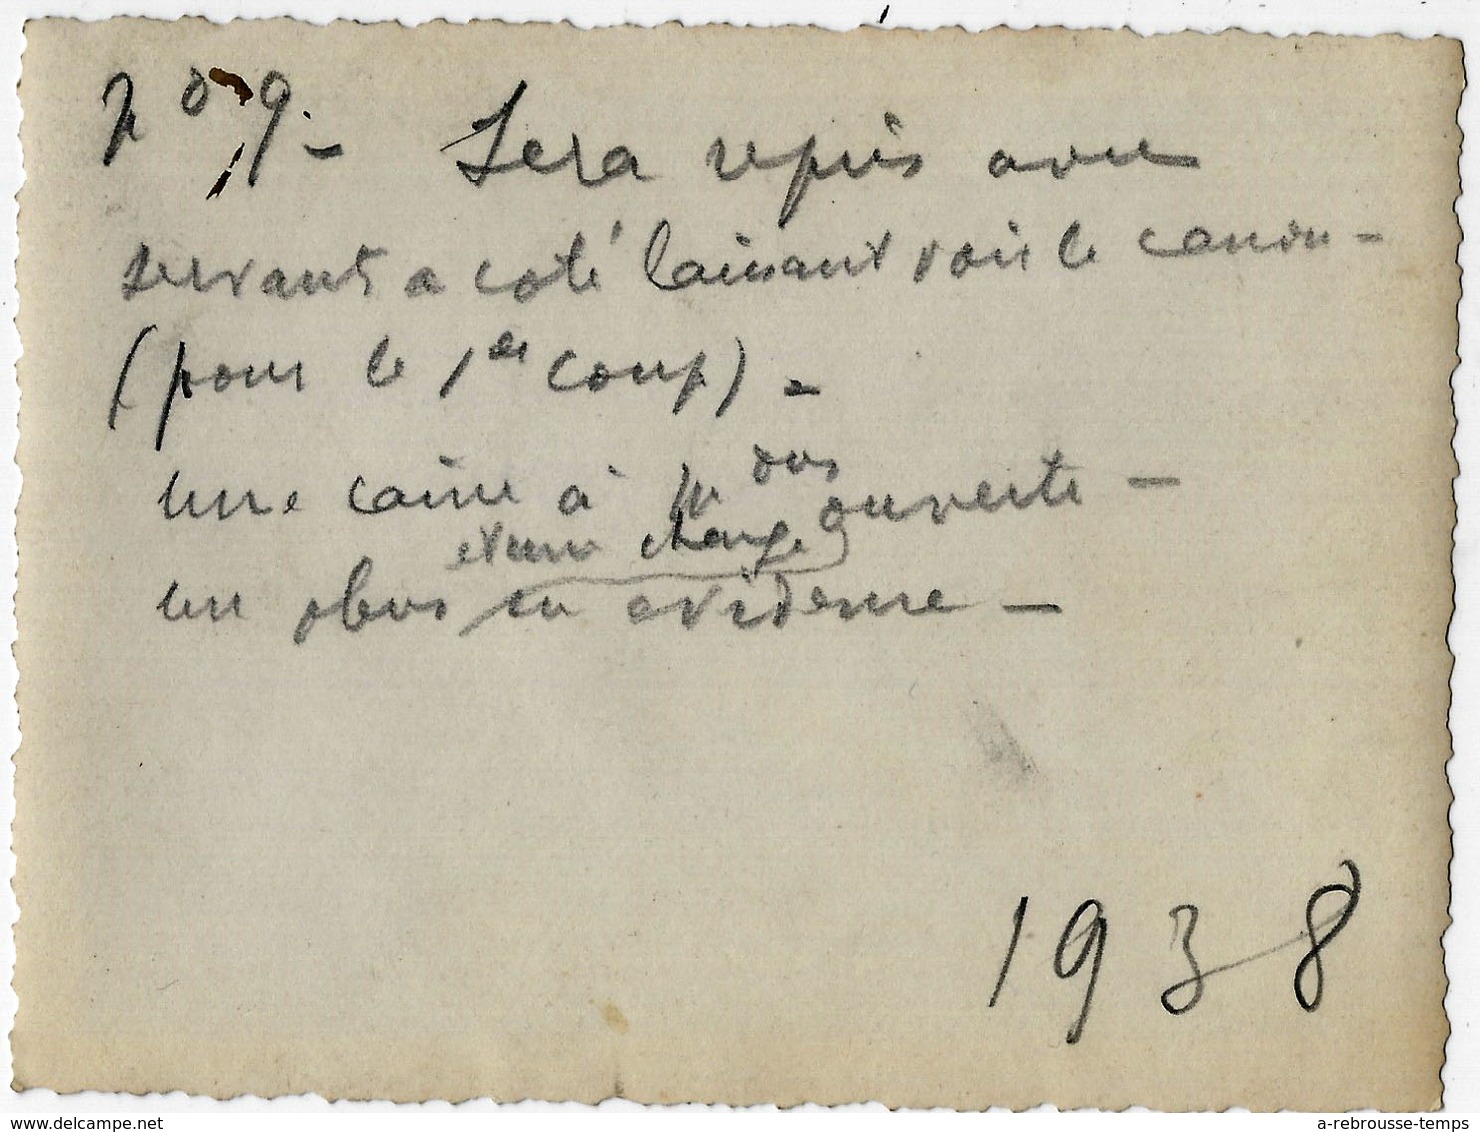 No 9 - Sera repris avec
servant a coté laissant voir le canon -
(pour le 1er coup) -
une caisse à ouverte -
et une charge
un obus en evidence -
1938
delcampe.net
a-rebrousse-temps